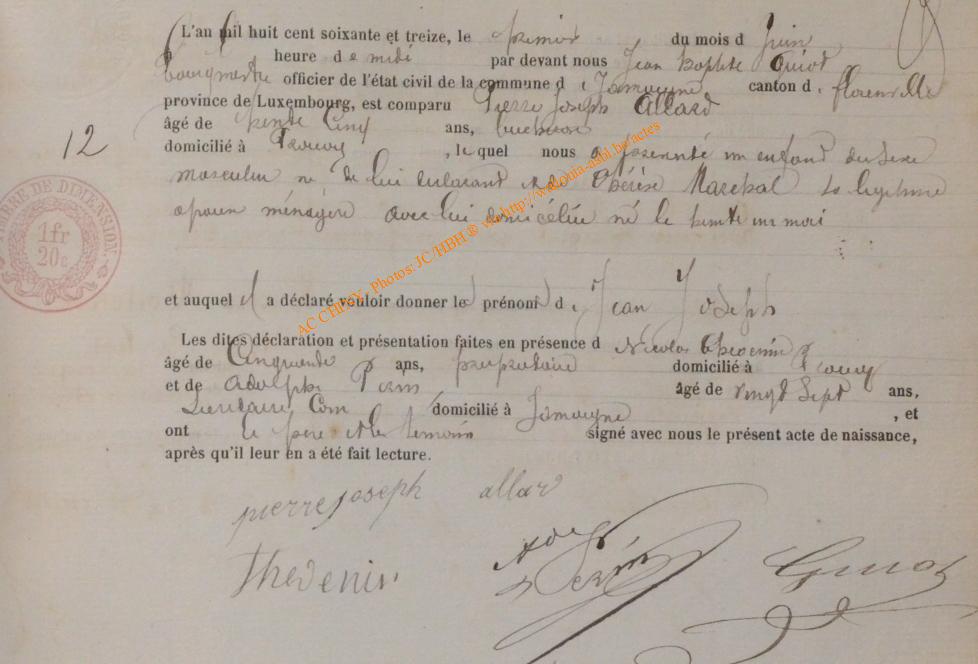 L'an mil huit cent soixante et treize, le premier du mois d Juin
a heure de midi par devant nous Jean Baptste Guiot
bourgmestre officier de l'état civil de la commune d e Jamoigne canton d e florenville
province de Luxembourg, est comparu Pierre Joseph Allard
âgé de trente Cinq ans, bucheron
domicilié à Prouvy, le quel nous a presenté un enfant du sexe
masculin né de lui declarant et de Thérèse Marechal sa legitime
epouse ménagère avec lui domiciliée né le trente un mai
et auquel il a déclaré vouloir donner les prénoms d e Jean Joseph
Les dites déclaration et présentation faites en présence d Nicolas Thevenin
âgé de Cinquante ans, propriétaire domicilié à Prouvy
et de Adolphe âgé de vingt Sept ans,
Secretaire Com domicilié à Jamoigne, et
ont le père et les temoins signé avec nous le présent acte de naissance,
après qu'il leur en a été fait lecture.
12
DE DIMENSION.
1fr
20c
AC CHINY - Photos: JC/HBH ® via http://wallonia-asbl.be/actes
pierre joseph allar
Thevenin
Guiot